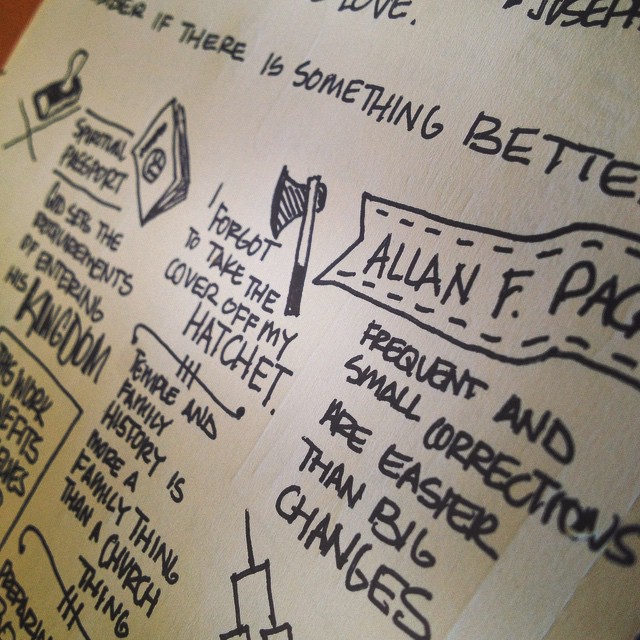 LOVE.
IF THERE IS SOMETHING
SPIRITUAL
PASSPORT
GOD SETS THE
REQUIREMENTS
OF ENTERING
HIS KINGDOM
I
FORGOT
TO TAKE THE
COVER OFF MY
HATCHET.
ALLAN F.
FREQUENT AND
SMALL CORRECTIONS
ARE EASIER
THAN BIG
CHANGES
TEMPLE AND
FAMILY
HISTORY IS
MORE A
FAMILY THING
THAN A CHURCH
THING
WORK